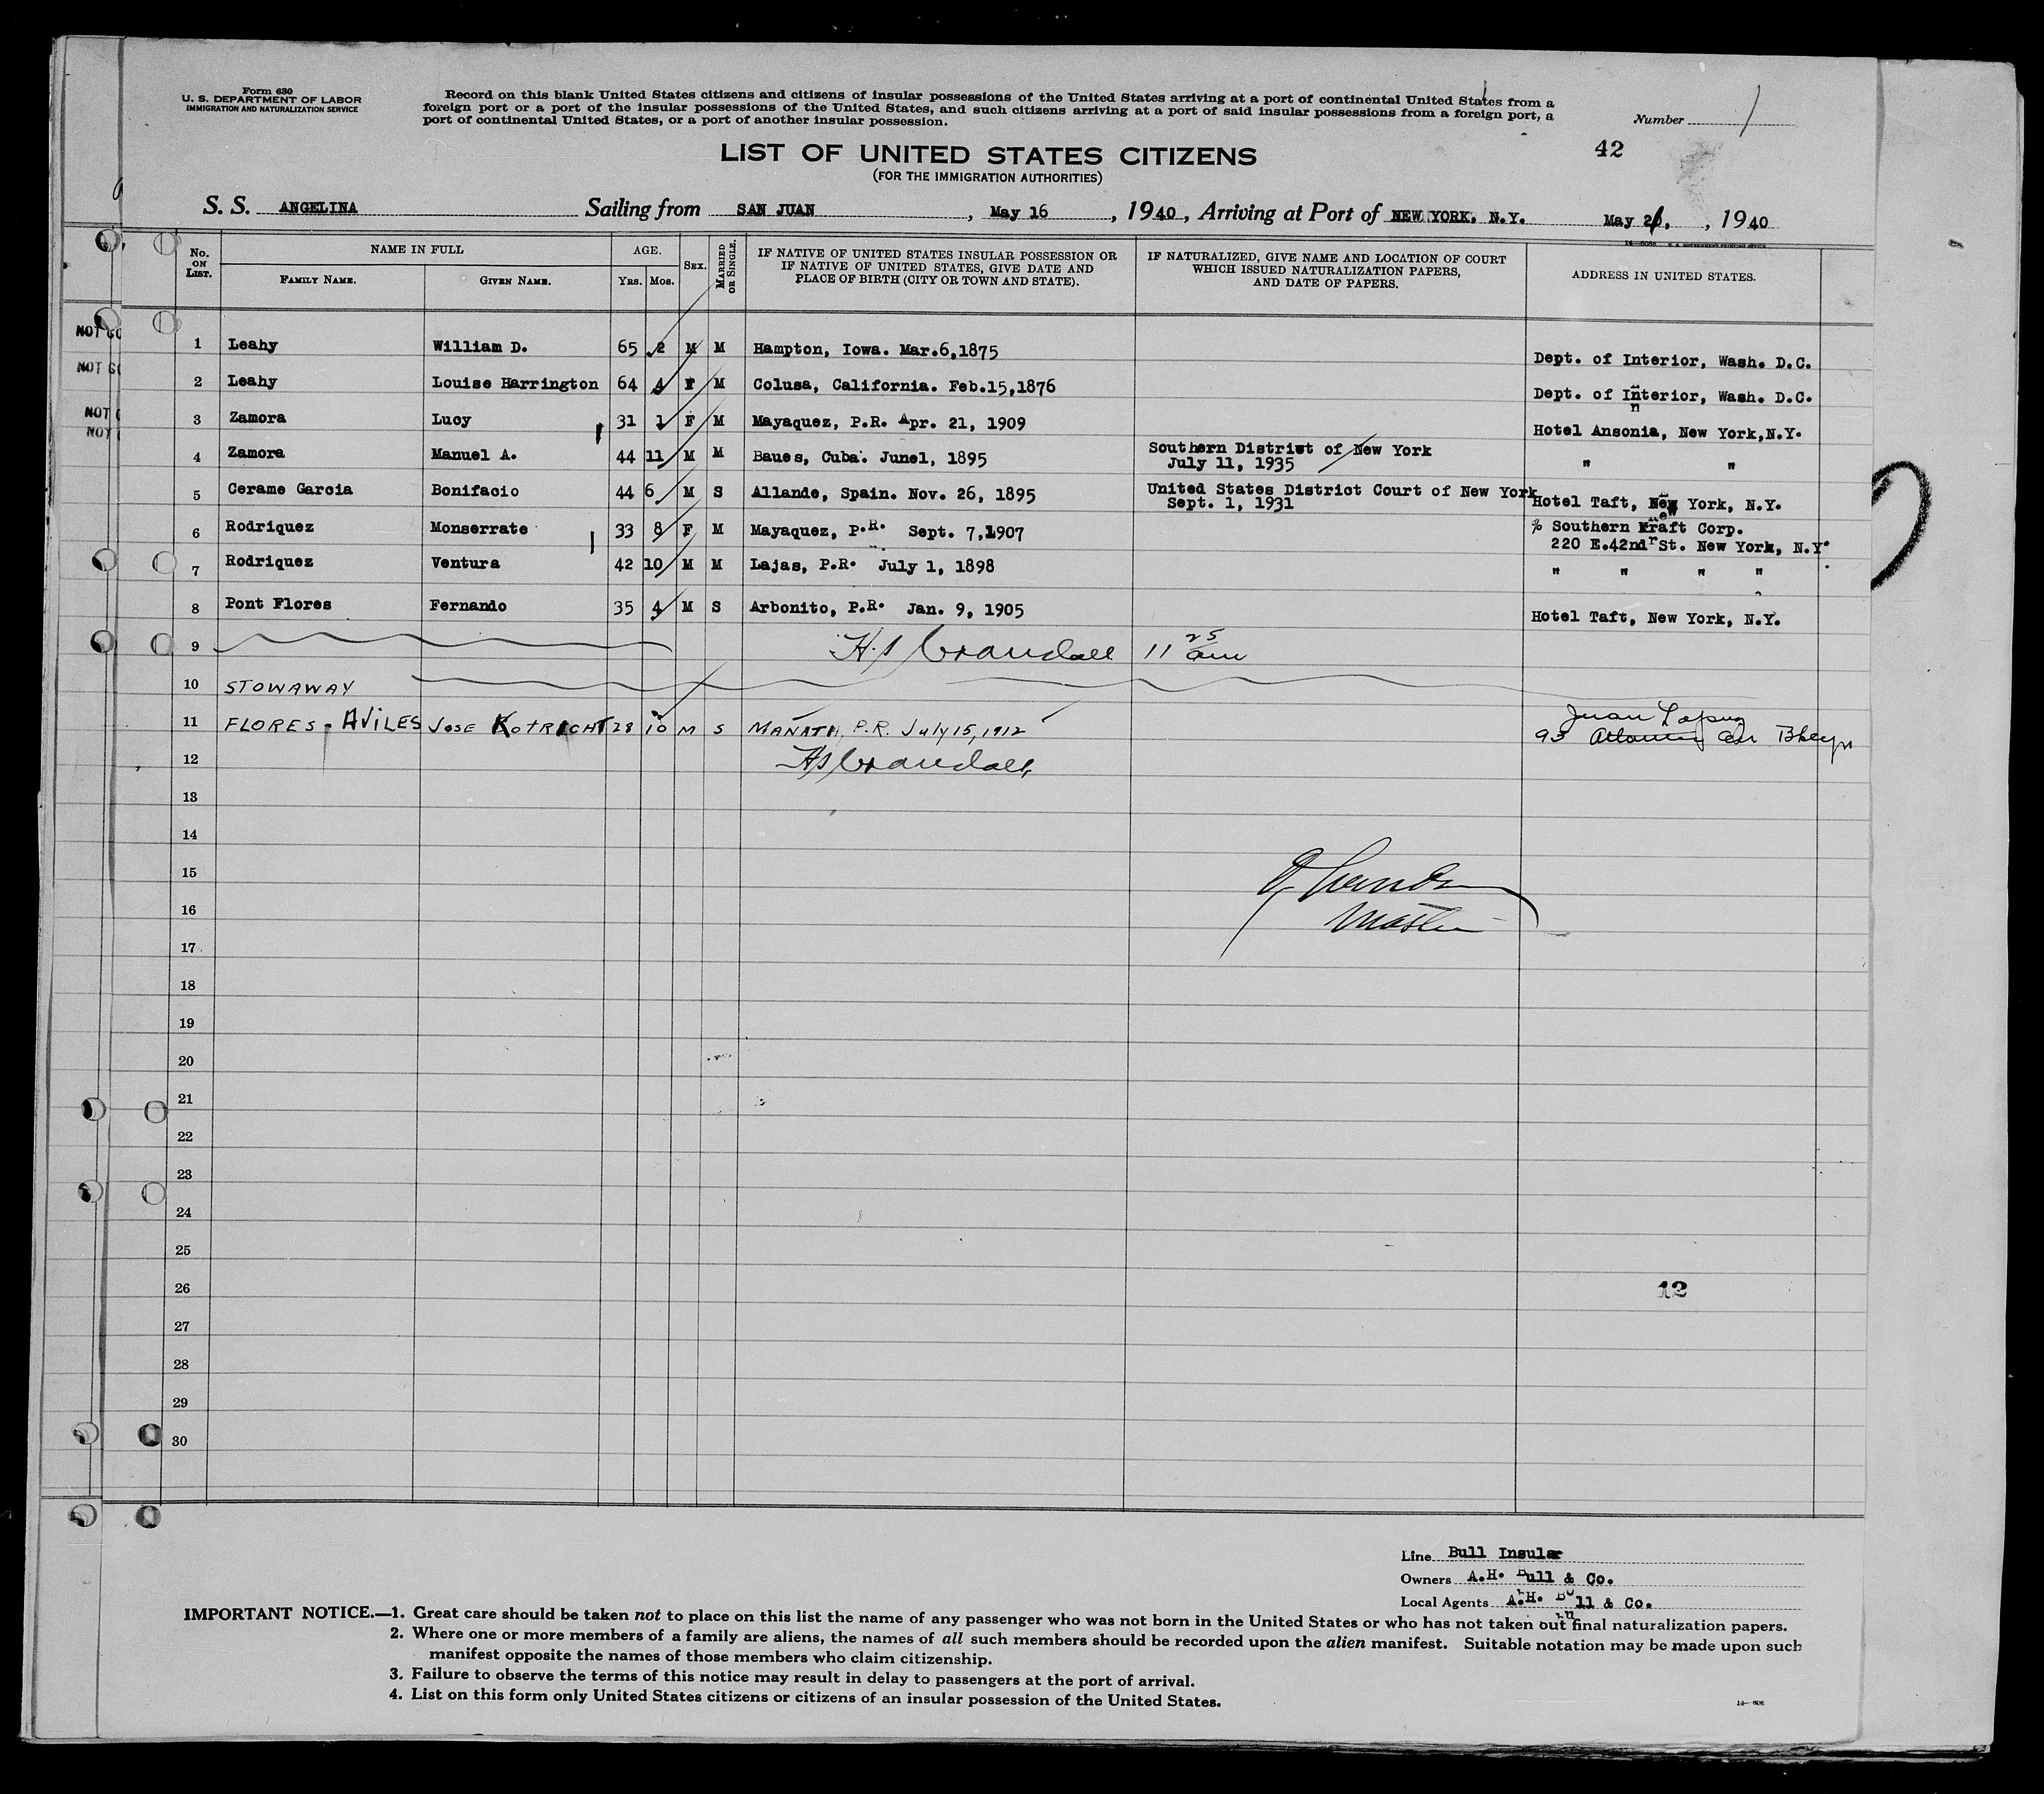 Form 630
U. S. DEPARTMENT OF LABOR
IMMIGRATION AND NATURALIZATION SERVICE
Record on this blank United States citizens and citizens of insular possessions of the United States arriving at a port of continental United States from a
foreign port or a port of the insular possessions of the United States, and such citizens arriving at a port of said insular possessions from a foreign port, a
port of continental United States, or a port of another insular possession.
Number 1
42
LIST OF UNITED STATES CITIZENS
(FOR THE IMMIGRATION AUTHORITIES)
S. S. ANGELINA Sailing from SAN JUAN, May 16, 1940, Arriving at Port of NEW YORK, N.Y. May 21, 1940
No. ON LIST. NAME IN FULL AGE. SEX. MARRIED OR SINGLE. IF NATIVE OF UNITED STATES INSULAR POSSESSION OR IF NATIVE OF UNITED STATES, GIVE DATE AND PLACE OF BIRTH (CITY OR TOWN AND STATE). IF NATURALIZED, GIVE NAME AND LOCATION OF COURT WHICH ISSUED NATURALIZATION PAPERS, AND DATE OF PAPERS. ADDRESS IN UNITED STATES.
FAMILY NAME. GIVEN NAME. YRS. MOS.
1 Leahy William D. 65 2 M M Hampton, Iowa. Mar.6,1875 Dept. of Interior, Wash. D.C.
2 Leahy Louise Harrington 64 4 F M Colusa, California. Feb.15,1876 Dept. of Interior, Wash. D.C.
3 Zamora Lucy 31 1 F M Mayaquez, P.R. Apr. 21, 1909 Hotel Ansonia, New York,N.Y.
4 Zamora Manuel A. 44 11 M M Baues, Cuba. June1, 1895 Southern District of New York " "
July 11, 1935
5 Cerame Garcia Bonifacio 44 6 M S Allande, Spain. Nov. 26, 1895 United States District Court of New York Hotel Taft, New York, N.Y.
Sept. 1, 1931
6 Rodriquez Monserrate 33 8 F M Mayaquez, P.R. Sept. 7,1907 % Southern Kraft Corp.
220 E.42nd St. New York, N.Y.
7 Rodriquez Ventura 42 10 M M Lajas, P.R. July 1, 1898 " " " "
8 Pont Flores Fernando 35 4 M S Arbonito, P.R. Jan. 9, 1905 Hotel Taft, New York, N.Y.
9 H.S Crandall 11 25 am
10 STOWAWAY
11 FLORES - AVILES JOSE KOTRICHT 28 10 M S MANATI, P.R. July 15, 1912 Juan
93 Atlantic Bklyn
12 HS Crandall
13
14
15
16 Master
17
18
19
20
21
22
23
24
25
26 12
27
28
29
30
Line Bull Insular
Owners A.H. Bull & Co.
Local Agents A.H. Bull & Co.
IMPORTANT NOTICE.—1. Great care should be taken not to place on this list the name of any passenger who was not born in the United States or who has not taken out final naturalization papers.
2. Where one or more members of a family are aliens, the names of all such members should be recorded upon the alien manifest. Suitable notation may be made upon such
manifest opposite the names of those members who claim citizenship.
3. Failure to observe the terms of this notice may result in delay to passengers at the port of arrival.
4. List on this form only United States citizens or citizens of an insular possession of the United States.